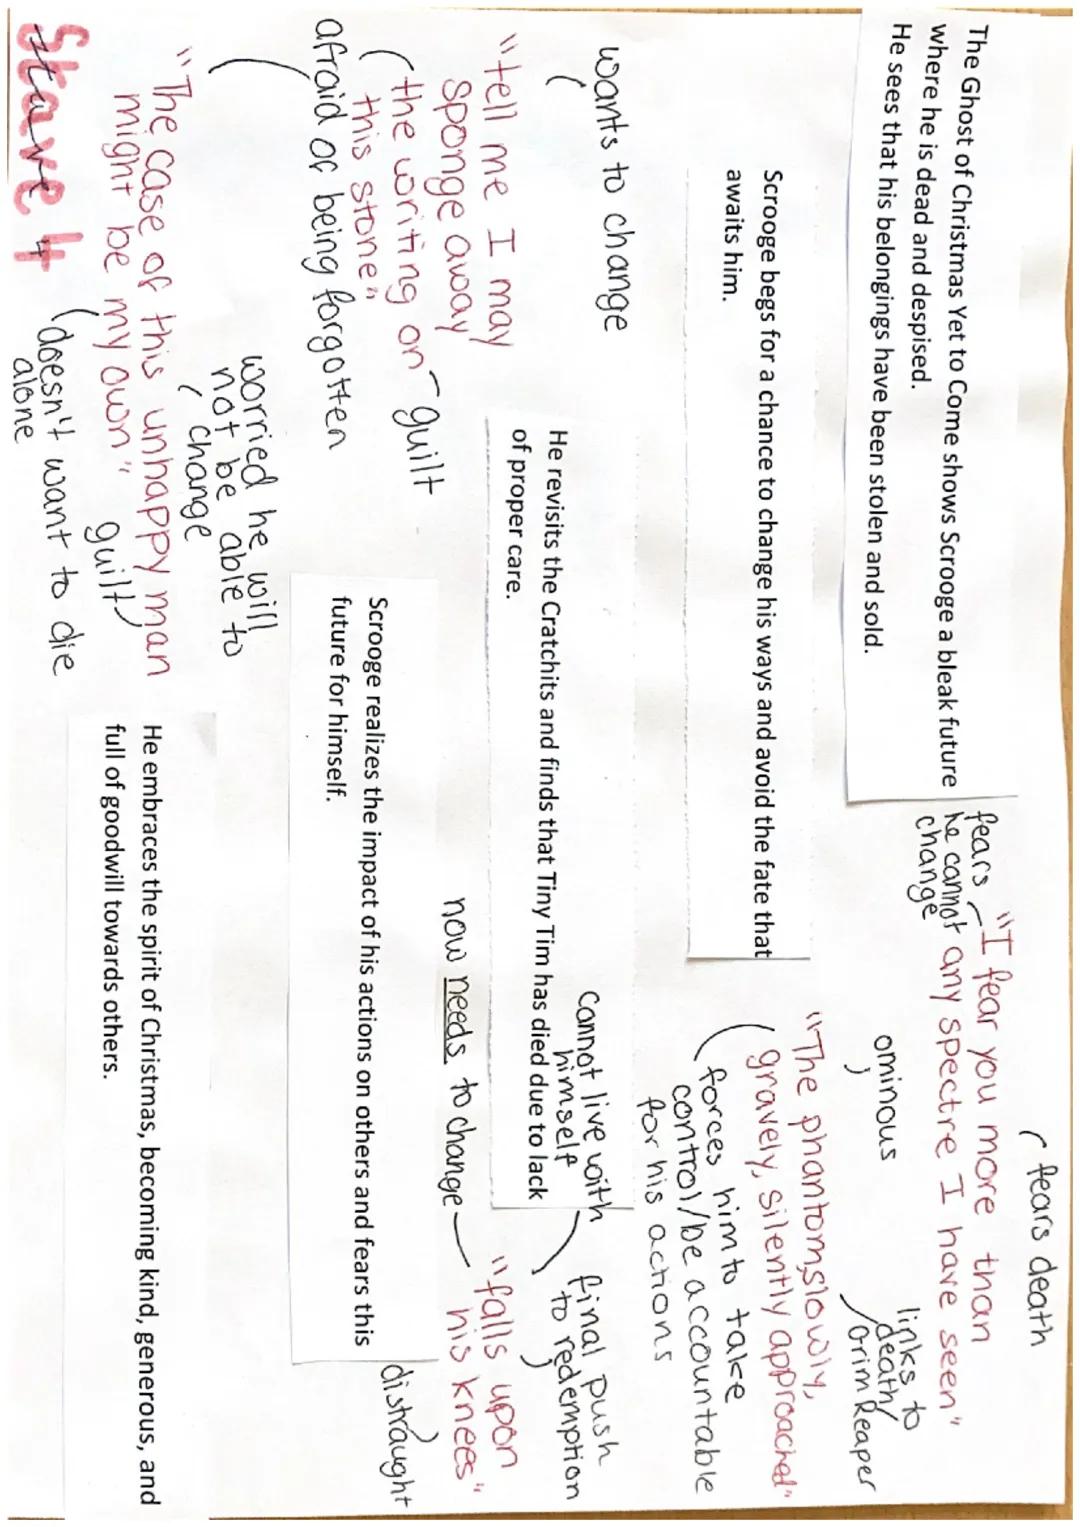 fears death
The Ghost of Christmas Yet to Come shows Scrooge a bleak future
where he is dead and despised.
He sees that his belongings have been stolen and sold.
fears
he cannot
change
"I fear you more than
any spectre I have seen"
ominous
links to
death/
Grim Reaper
Scrooge begs for a chance to change his ways and avoid the fate that
awaits him.
"The phantom slowly,
gravely, silently approached"
forces him to take
control/be accountable
for his actions
wants to change
He revisits the Cratchits and finds that Tiny Tim has died due to lack
of proper care.
Cannot live with
himself
final push
to redemption
"tell me I may
sponge away
the writing on
this stone"
guilt
afraid of being forgotten
now needs to change
"falls upon
his knees"
distraught
Scrooge realizes the impact of his actions on others and fears this
future for himself.
worried he will
not be able to
change
"The case of this unhappy man
might be my own"
guilt
doesn't want to die
alone
He embraces the spirit of Christmas, becoming kind, generous, and
full of goodwill towards others.
Stave 4